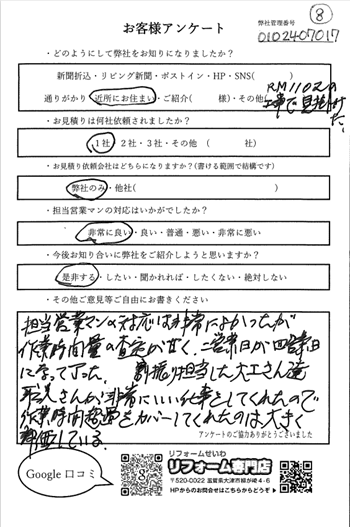 ⑧
お客様アンケート
弊社管理番号
0102407017
・どのようにして弊社をお知りになりましたか？
新聞折込・リビング新聞・ポストイン・HP・SNS(　　　)
通りがかり・近所にお住まい・ご紹介(　　　様)・その他(
RM1102の
工事で見かけ
た。
・お見積りは何社依頼されましたか？
1社・2社・3社・その他 (　　　社)
・お見積り依頼会社はどちらになりますか？(書ける範囲で結構です)
弊社のみ・他社(　　　)
・担当営業マンの対応はいかがでしたか？
非常に良い・良い・普通・悪い・非常に悪い
・今後お知り合いに弊社をご紹介しようと思いますか？
是非する・したい・聞かれれば・したくない・絶対しない
・その他ご意見等ご自由にお書きください
担当営業マンの対応は非常によかったが
作業時間量の査定が甘く、二営業日が四営業日
になって了った。割振り担当した大工さん達
職人さんが非常にいい仕事をしてくれたので
作業時間超過をカバーしてくれたのは大きく
評価している。
アンケートのご協力ありがとうございました
Google 口コミ
リフォームせいわ
リフォーム専門店
〒520-0022 滋賀県大津市柳が崎4-6
HPからのお問合せはこちらからどうぞ